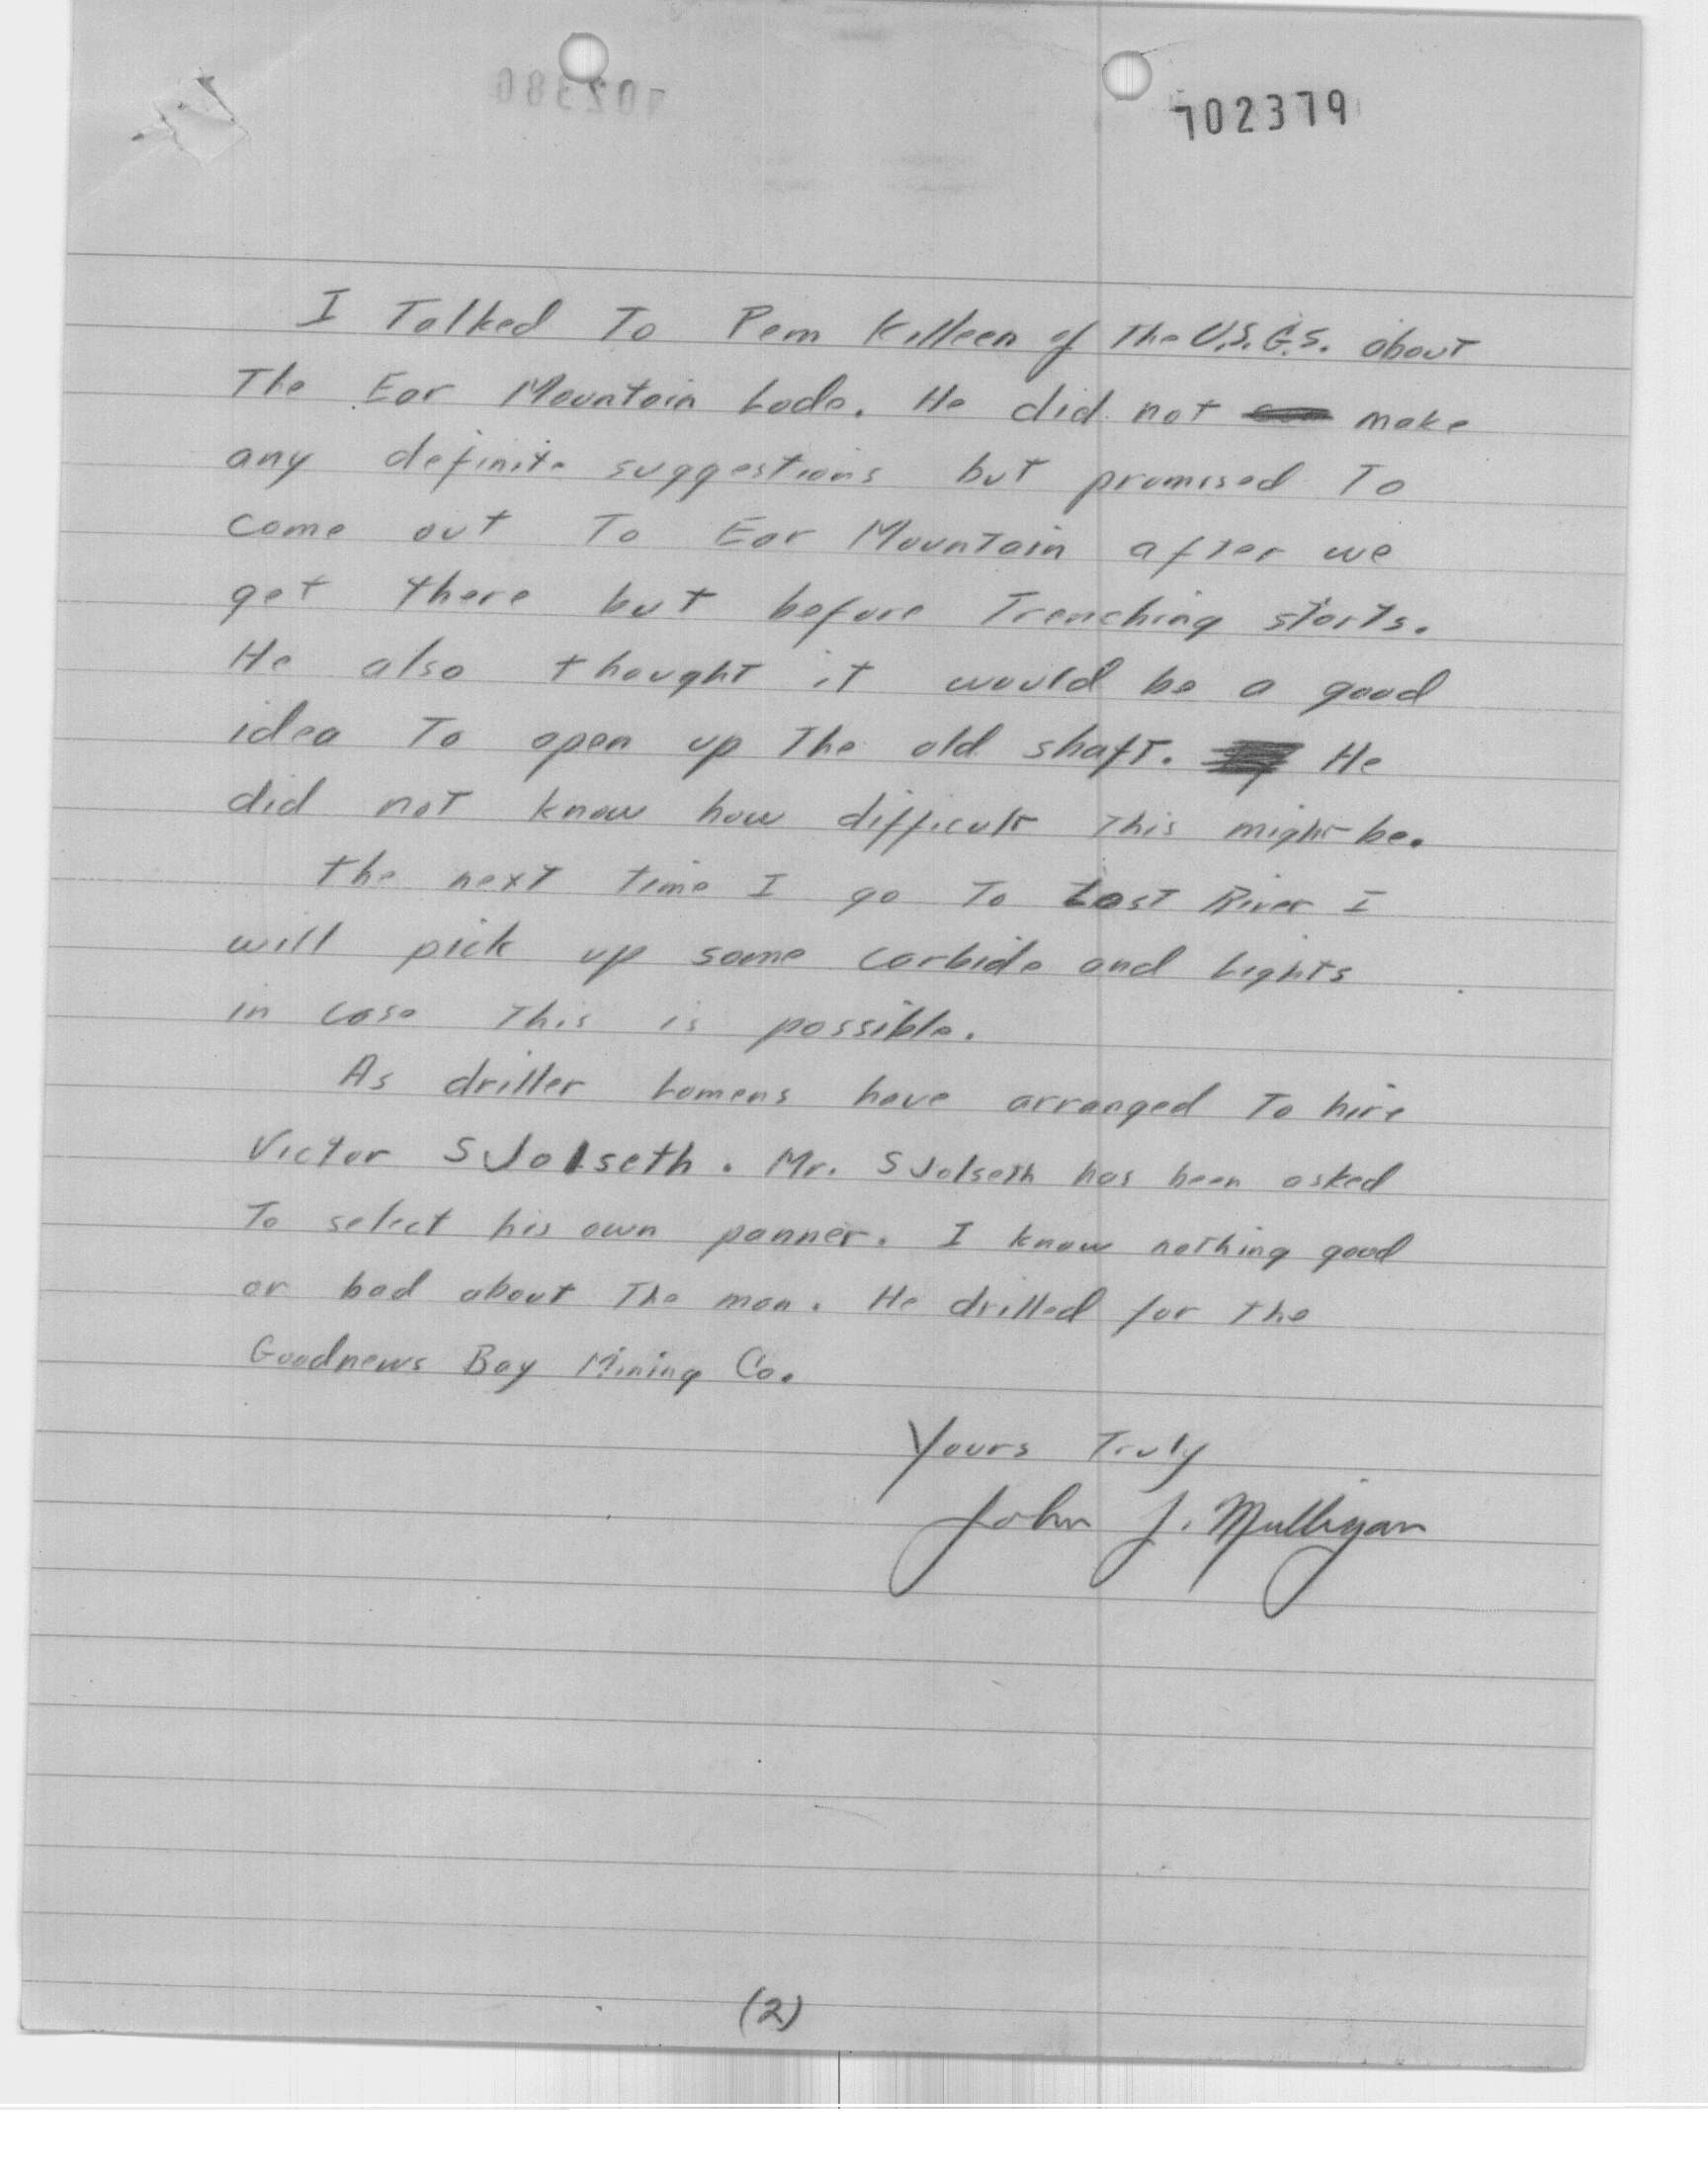 702380
702379
I Talked To Pem Killeen of The U.S.G.S. about
The Ear Mountain Lode. He did not make
any definite suggestions but promised To
come out To Ear Mountain after we
get there but before Trenching starts.
He also thought it would be a good
idea To open up The old shaft. He
did not know how difficult This might be.
The next time I go To Lost River I
will pick up some carbide and Lights
in case This is possible.
As driller Lomens have arranged To hire
Victor SJolseth. Mr. SJolseth has been asked
To select his own panner. I know nothing good
or bad about The man. He drilled for the
Goodnews Bay Mining Co.
Yours Truly
John J. Mulligan
(2)